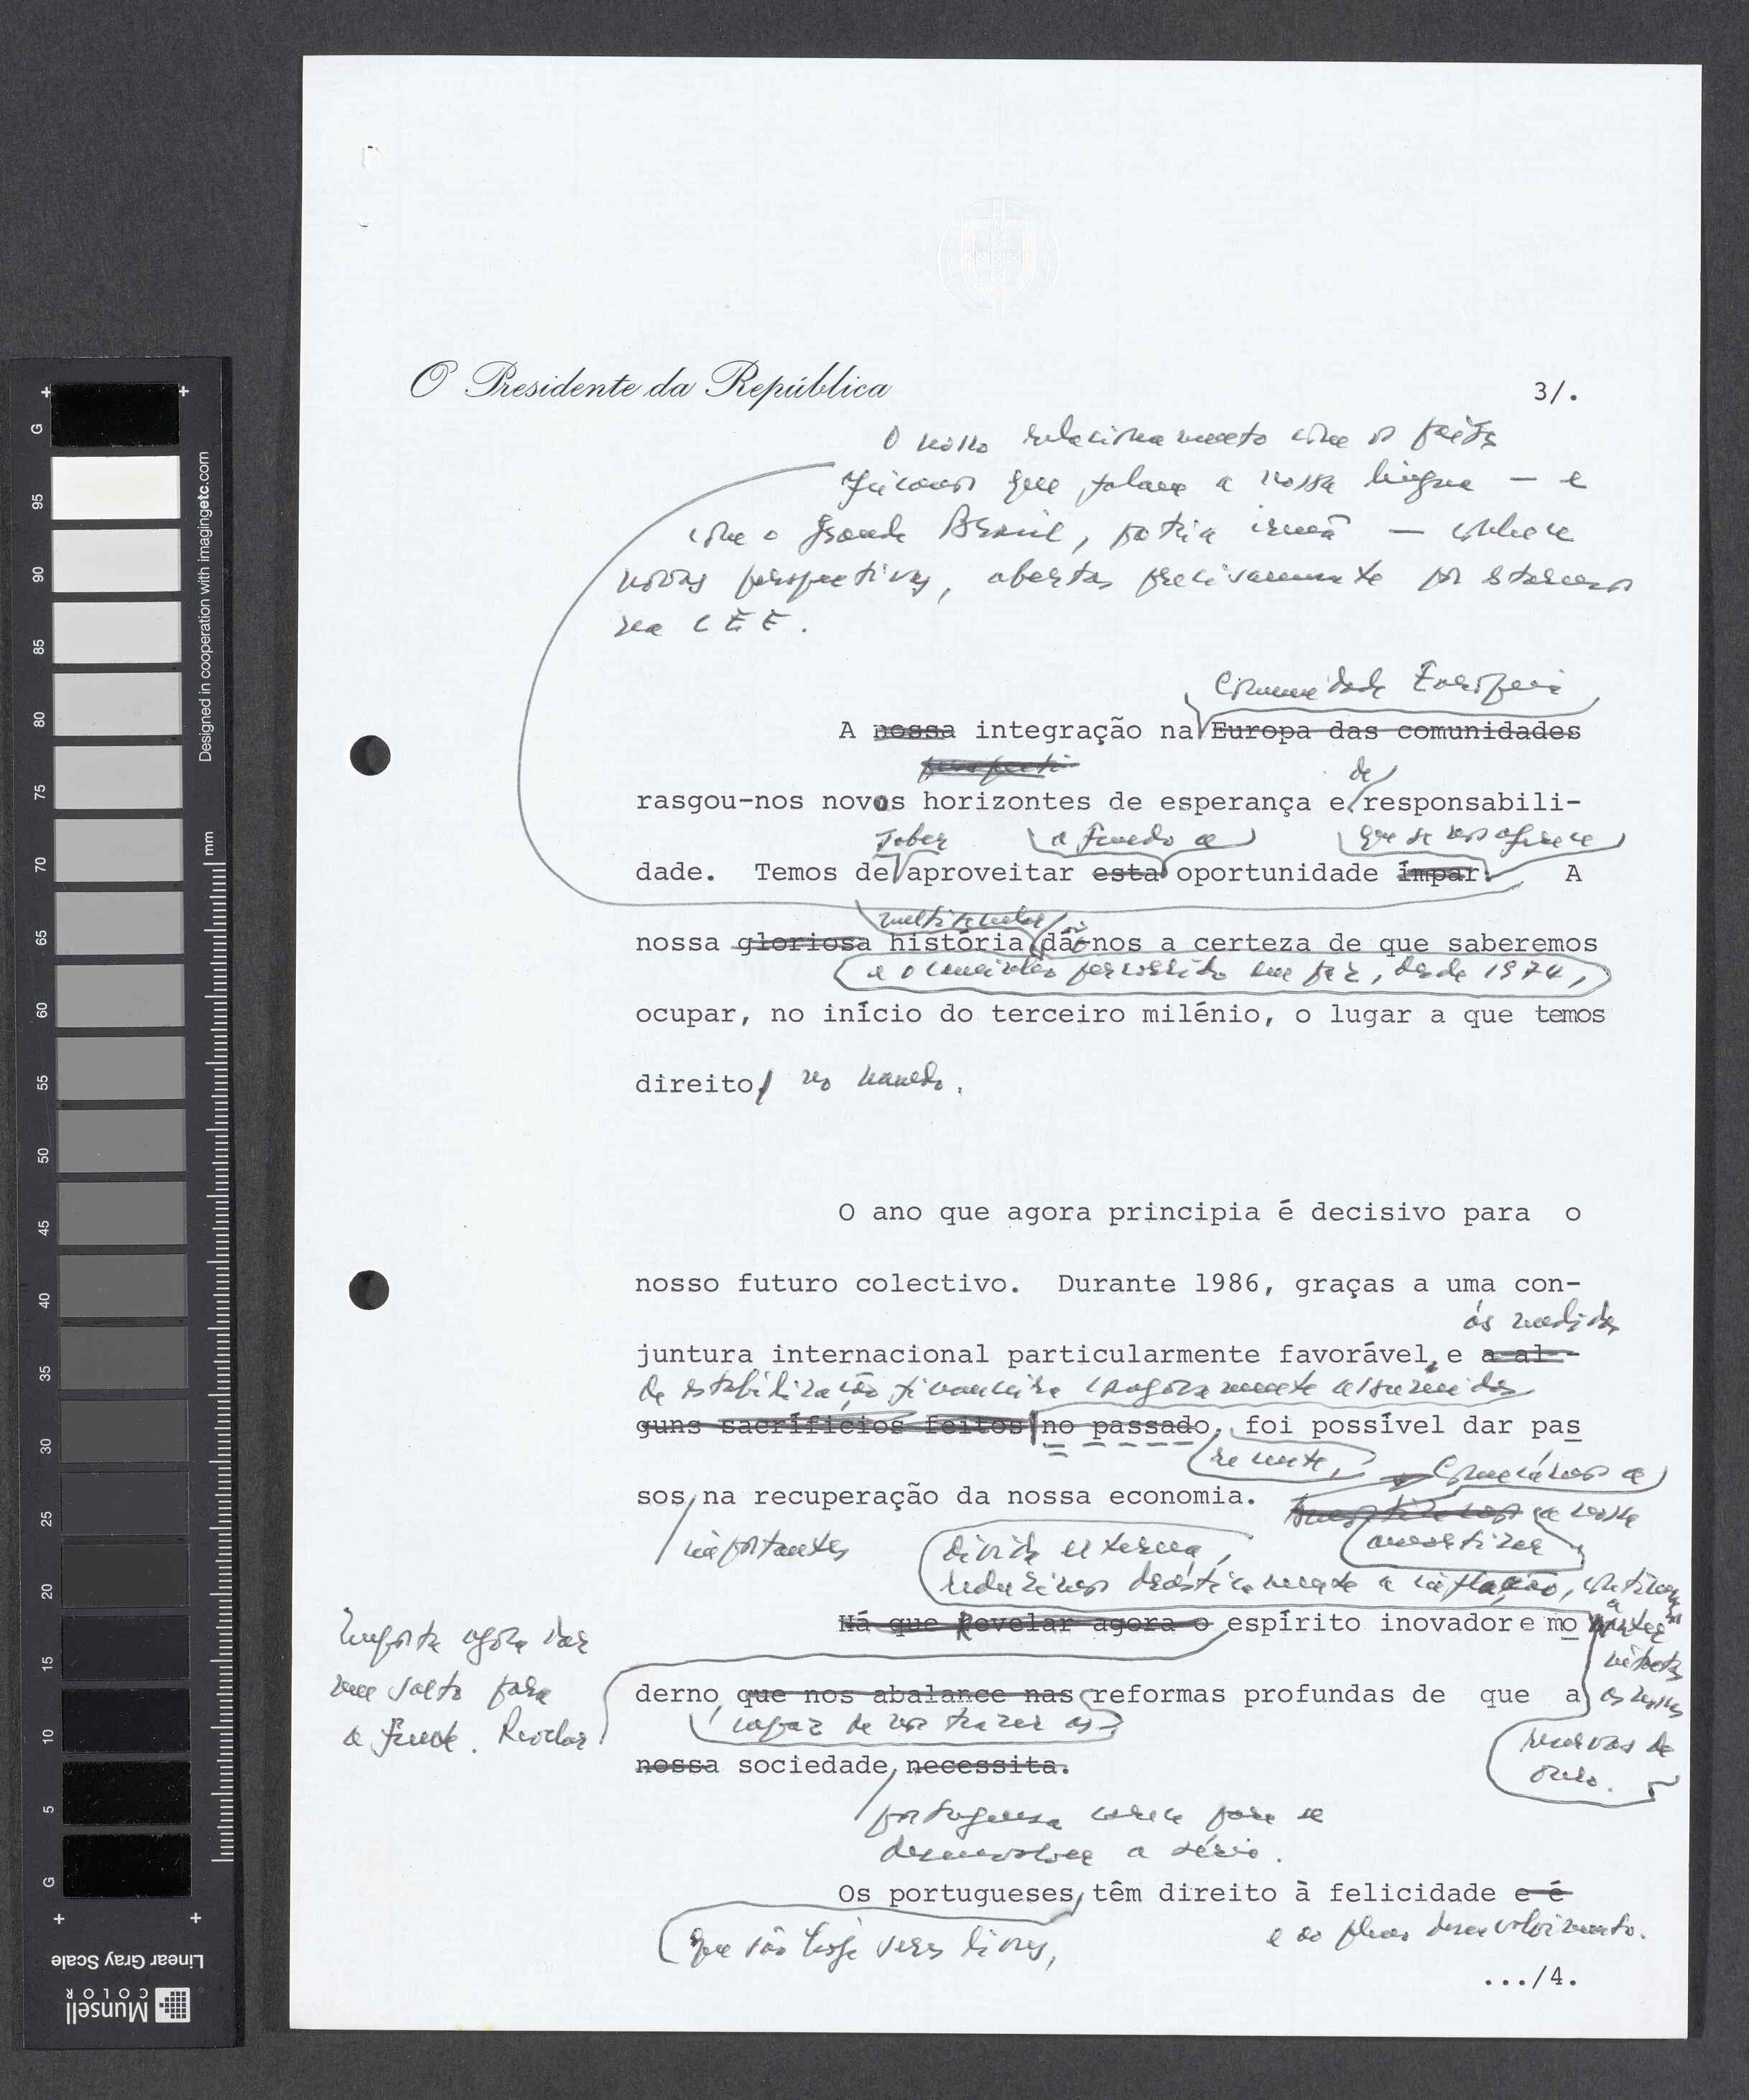 O Presidente da República
3/.
O nosso relacionamento com os países
africanos que falam a nossa língua — e
com o grande Brasil, pátria irmã — conhece
novas perspectivas, abertas precisamente por estarmos
na CEE.
Comunidade Europeia
A nossa integração na Europa das comunidades
perspecti
de
rasgou-nos novos horizontes de esperança e responsabili-
saber a fundo a que se nos oferece
dade. Temos de aproveitar esta oportunidade ímpar. A
multissecular
nossa gloriosa história dá-nos a certeza de que saberemos
e o caminho percorrido em paz, desde 1974,
ocupar, no início do terceiro milénio, o lugar a que temos
direito no mundo.
O ano que agora principia é decisivo para o
nosso futuro colectivo. Durante 1986, graças a uma con-
às medidas
juntura internacional particularmente favorável, e a al-
de estabilização financeira corajosamente assumidas
guns sacrifícios feitos no passado, foi possível dar pas
recente,
Começámos a
sos na recuperação da nossa economia. a nossa
importantes
amortizar
dívida externa,
reduzimos drasticamente a inflação,
a
Há que Revelar agora o espírito inovador e mo manter
intactas
Importa agora dar
um salto para
a frente. Revelar
derno que nos abalance nas reformas profundas de que a os nossos
capaz de nos trazer as
reservas de
ouro.
nossa sociedade necessita.
portuguesa carece para se
desenvolver a sério.
Os portugueses, têm direito à felicidade e é
que são hoje seres livres,
e ao pleno desenvolvimento.
.../4.
G
95
90
85
80
75
70
65
60
55
50
45
40
35
30
25
20
15
10
5
G
mm
Designed in cooperation with imagingetc.com
Linear Gray Scale
Munsell
COLOR